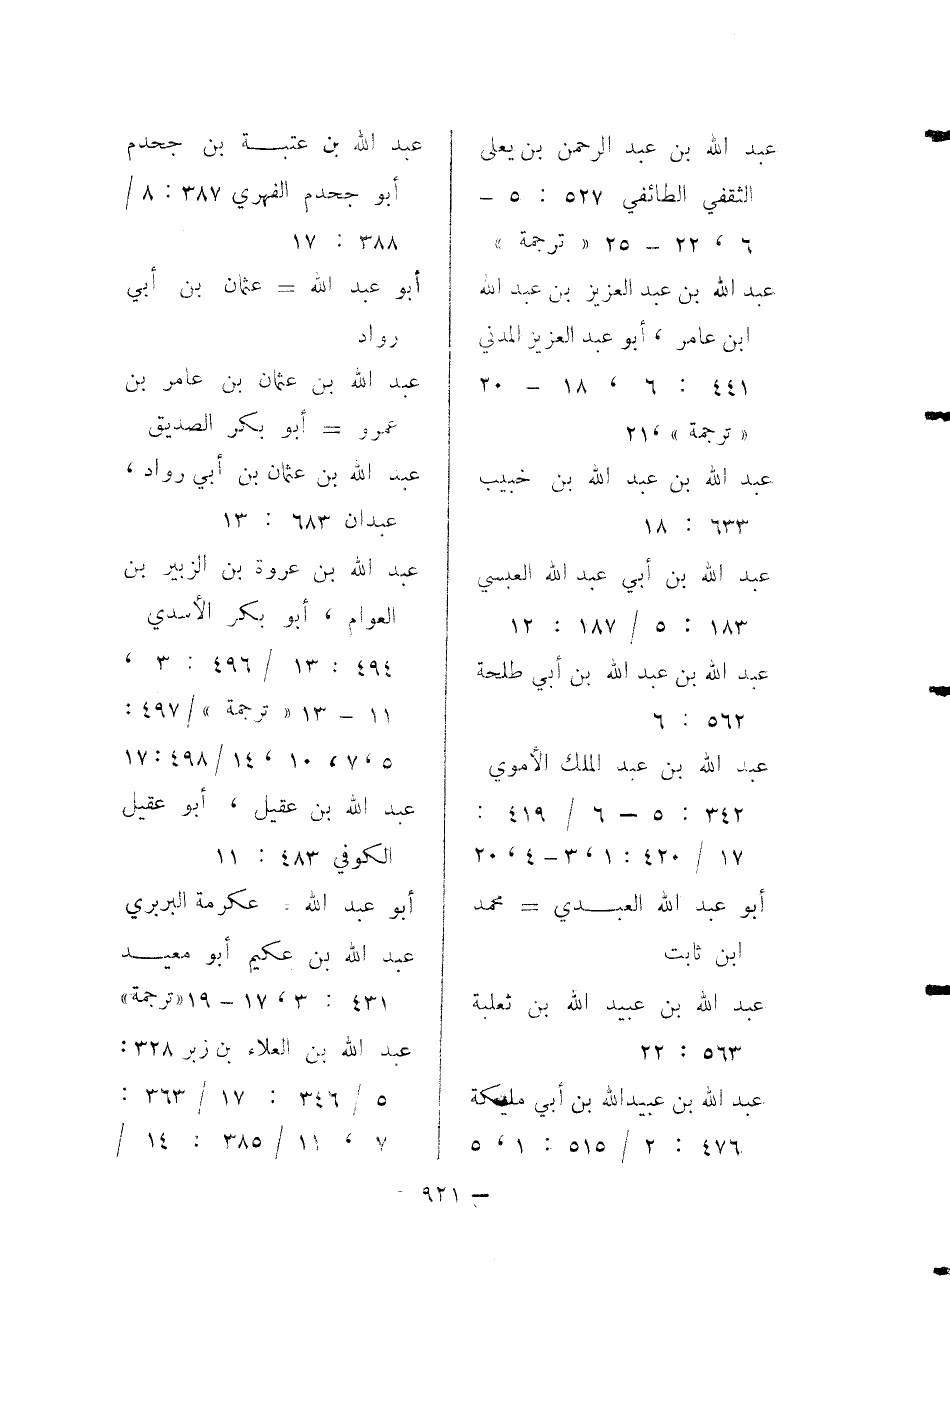 عبد الله بن عبد الرحمن بن يعلى
الثقفي الطائفي ٥٢٧ : ٥ –
٦ ، ٢٢ – ٢٥ « ترجمة »
عبد الله بن عبد العزيز بن عبد الله
ابن عامر ، أبو عبد العزيز المدني
٤٤١ : ٦ ، ١٨ – ٢٠
« ترجمة » ،٢١
عبد الله بن عبد الله بن خبيب
٦٣٣ : ١٨
عبد الله بن أبي عبد الله العبسي
١٨٣ : ٥ / ١٨٧ : ١٢
عبد الله بن عبد الله بن أبي طلحة
٥٦٢ : ٦
عبد الله بن عبد الملك الأموي
٣٤٢ : ٥ – ٦ / ٤١٩ :
١٧ / ٤٢٠ : ١ ، ٣ – ٤ ، ٢٠
أبو عبد الله العبـــدي = محمد
ابن ثابت
عبد الله بن عبيد الله بن ثعلبة
٥٦٣ : ٢٢
عبد الله بن عبيدالله بن أبي مليكة
٤٧٦ : ٢ / ٥١٥ : ١ ، ٥
عبد الله بن عتبـــة بن جحدم
أبو جحدم الفهري ٣٨٧ : ٨ /
٣٨٨ : ١٧
أبو عبد الله = عثمان بن أبي
رواد
عبد الله بن عثمان بن عامر بن
عمرو = أبو بكر الصديق
عبد الله بن عثمان بن أبي رواد ،
عبدان ٦٨٣ : ١٣
عبد الله بن عروة بن الزبير بن
العوام ، أبو بكر الأسدي
٤٩٤ : ١٣ / ٤٩٦ : ٣ ،
١١ – ١٣ « ترجمة » / ٤٩٧ :
٥ ، ٧ ، ١٠ ، ١٤ / ٤٩٨ : ١٧
عبد الله بن عقيل ، أبو عقيل
الكوفي ٤٨٣ : ١١
أبو عبد الله = عكرمة البربري
عبد الله بن عكيم أبو معبـــد
٤٣١ : ٣ ، ١٧ – ١٩ «ترجمة»
عبد الله بن العلاء بن زبر ٣٢٨ :
٥ / ٣٤٦ : ١٧ / ٣٦٣ :
٧ ، ١١ / ٣٨٥ : ١٤ /
– ٩٢١ –